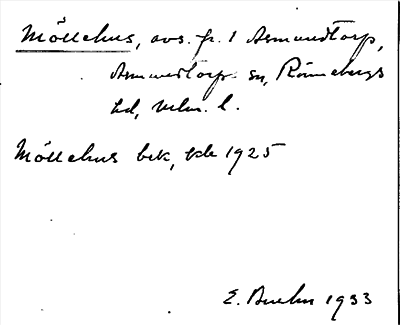 Möllehus, avs. fr. 1 Asmundtorp,
Asmundtorp sn, Rönnebergs
hd, Mlm. l.
Möllehus bek, kb 1925
E. 1933